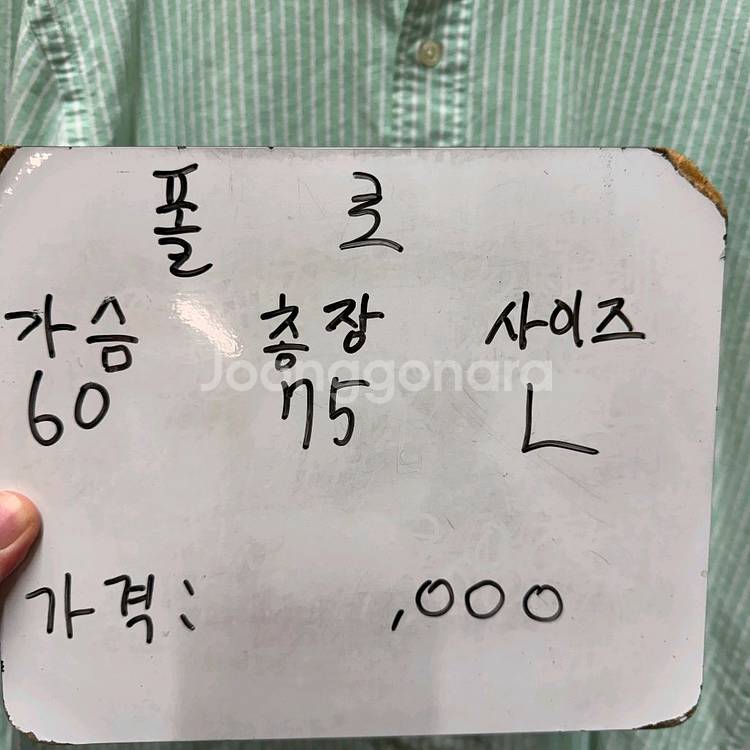 폴 로
가슴 총장 사이즈
Joonggonara
60 75 L
가격: ,000